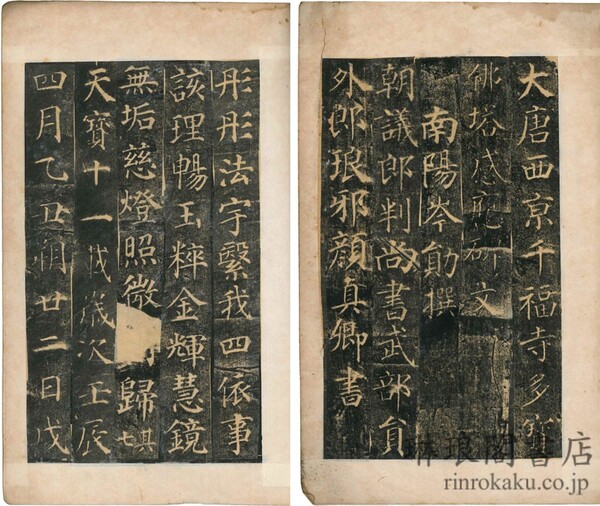 大唐西京千福寺多寶
佛塔感應碑文
南陽岑勛撰
朝議郎判尚書武部員
外郎琅邪顏真卿書
彤彤法宇繫我四依事
該理暢玉粹金輝慧鏡
無垢慈燈照微 歸 其七
天寶十一載歲次壬辰
四月乙丑朔廿二日戊
琳琅閣書店
rinrokaku.co.jp